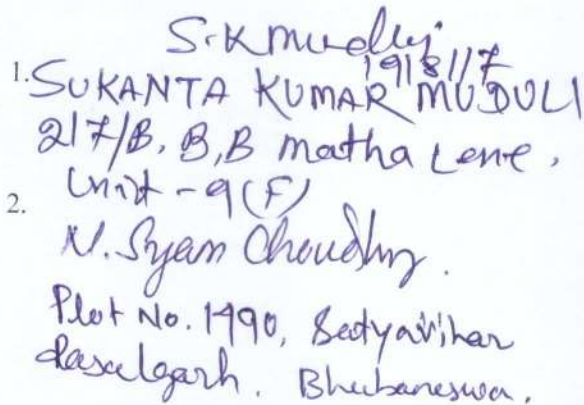 S.K Muduli
19/8/17
1. SUKANTA KUMAR MUDULI
217/B, B,B matha Lene,
Unit - 9 (F)
2.
N. Syam Choudhury.
Plot No. 1490, Satyavihar
Rasulgarh. Bhubaneswar.